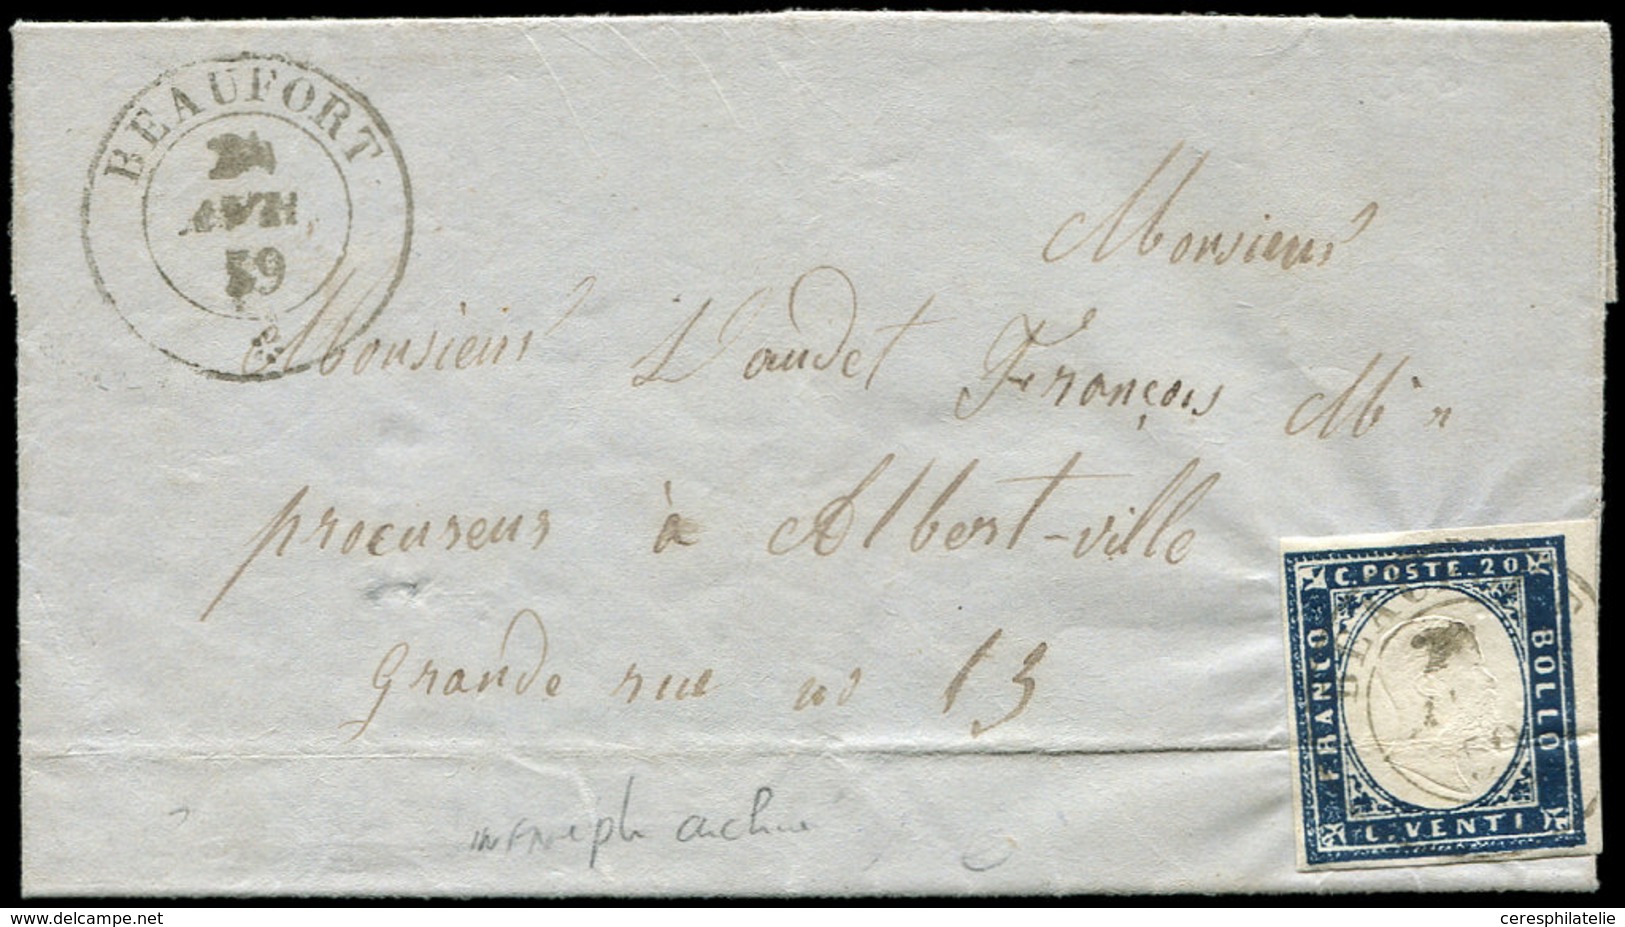 BEAUFORT
AVR
59
Monsieur
Monsieur Vaudet François
procureur à Albert-ville
Grande rue no 13
C. POSTE. 20
FRANCO
BOLLO
C. VENTI
www.delcampe.net
ceresphilatelie